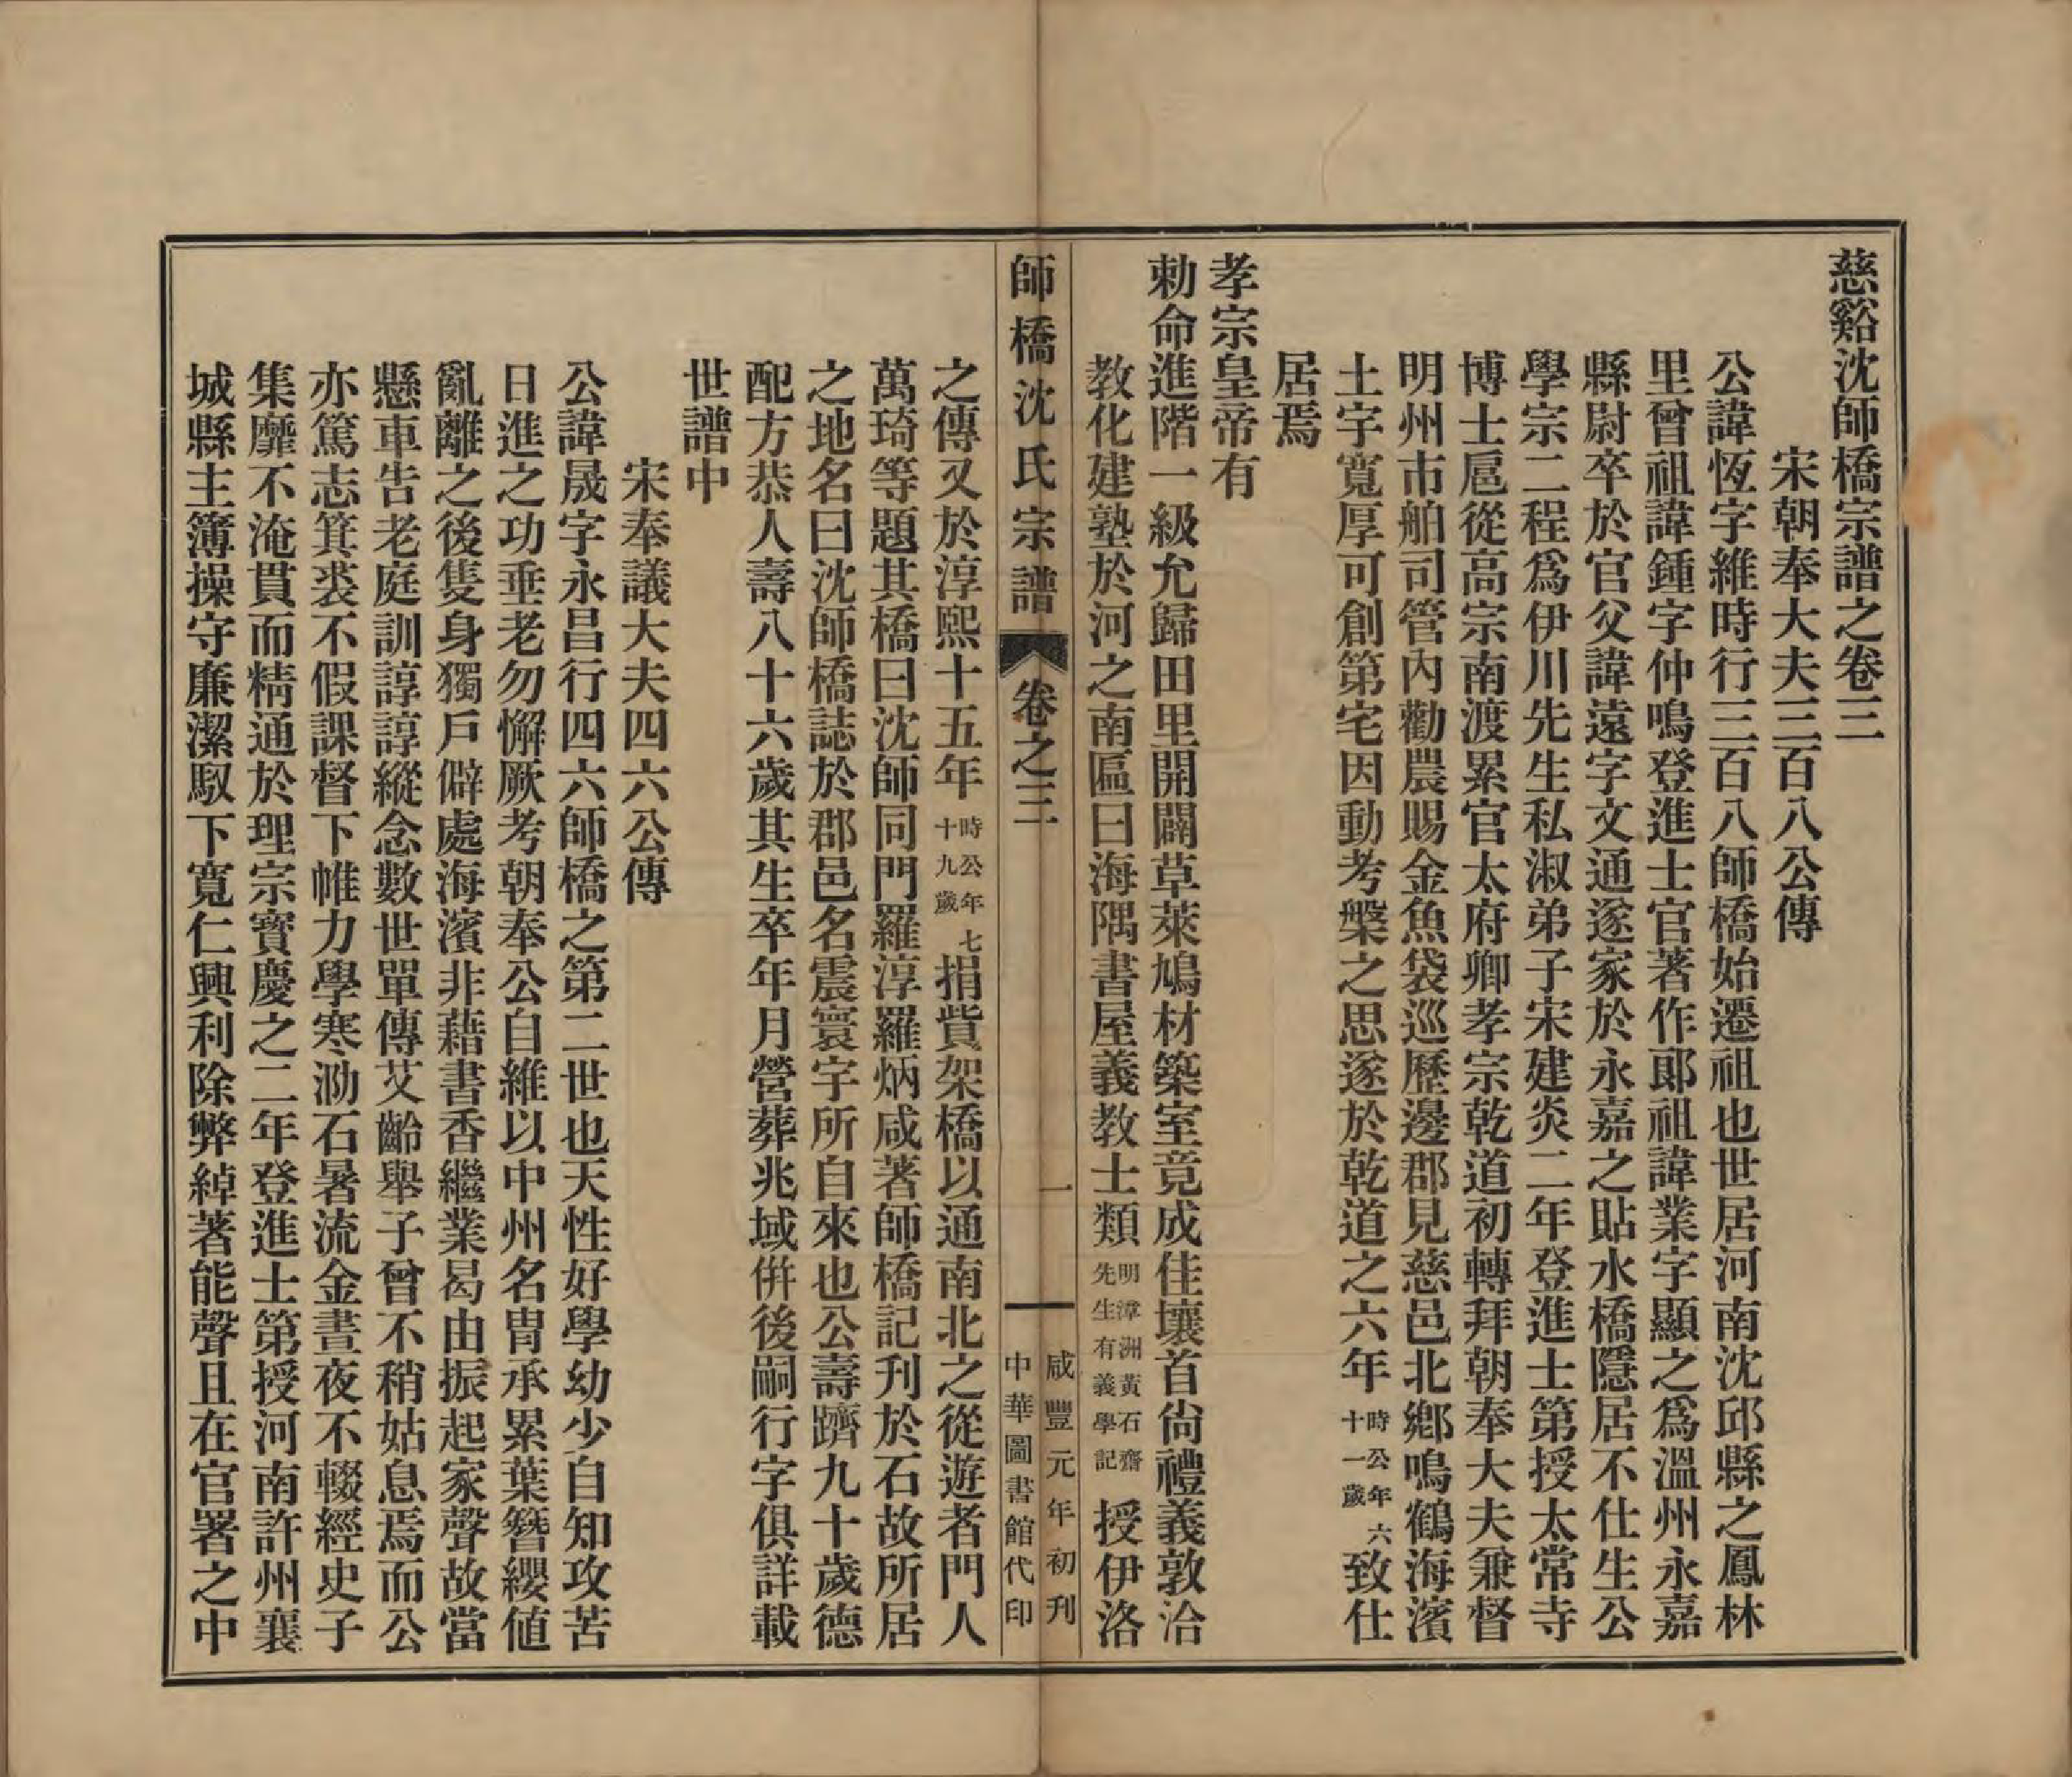 慈谿沈師橋宗譜之卷三
宋朝奉大夫三百八公傳
公諱恆字維時行三百八師橋始遷祖也世居河南沈邱縣之鳳林
里曾祖諱鍾字仲鳴登進士官著作郞祖諱業字顯之爲溫州永嘉
縣尉卒於官父諱遠字文通遂家於永嘉之貼水橋隱居不仕生公
學宗二程爲伊川先生私淑弟子宋建炎二年登進士第授太常寺
博士扈從高宗南渡累官太府卿孝宗乾道初轉拜朝奉大夫兼督
明州市舶司管內勸農賜金魚袋巡歷邊郡見慈邑北鄕鳴鶴海濱
土宇寬厚可創第宅因動考槃之思遂於乾道之六年時公年六十一歲致仕
居焉
孝宗皇帝有
勅命進階一級允歸田里開闢草萊鳩材築室竟成佳壤首尙禮義敦洽
教化建塾於河之南區曰海隅書屋義教士類明漳洲黃石齋先生有義學記授伊洛
師橋沈氏宗譜 卷之三 一 咸豐元年初刊 中華圖書館代印
之傳又於淳熙十五年時公年七十九歲捐貲架橋以通南北之從遊者門人
萬琦等題其橋曰沈師同門羅淳羅炳咸著師橋記刊於石故所居
之地名曰沈師橋誌於郡邑名震寰宇所自來也公壽躋九十歲德
配方恭人壽八十六歲其生卒年月營葬兆域併後嗣行字俱詳載
世譜中
宋奉議大夫四六公傳
公諱晟字永昌行四六師橋之第二世也天性好學幼少自知攻苦
日進之功垂老勿懈厥考朝奉公自維以中州名胄承累葉簪纓値
亂離之後隻身獨戶僻處海濱非藉書香繼業曷由振起家聲故當
懸車告老庭訓諄諄縱念數世單傳艾齡舉子曾不稍姑息焉而公
亦篤志箕裘不假課督下帷力學寒泐石暑流金晝夜不輟經史子
集靡不淹貫而精通於理宗寶慶之二年登進士第授河南許州襄
城縣主簿操守廉潔馭下寬仁興利除弊綽著能聲且在官署之中